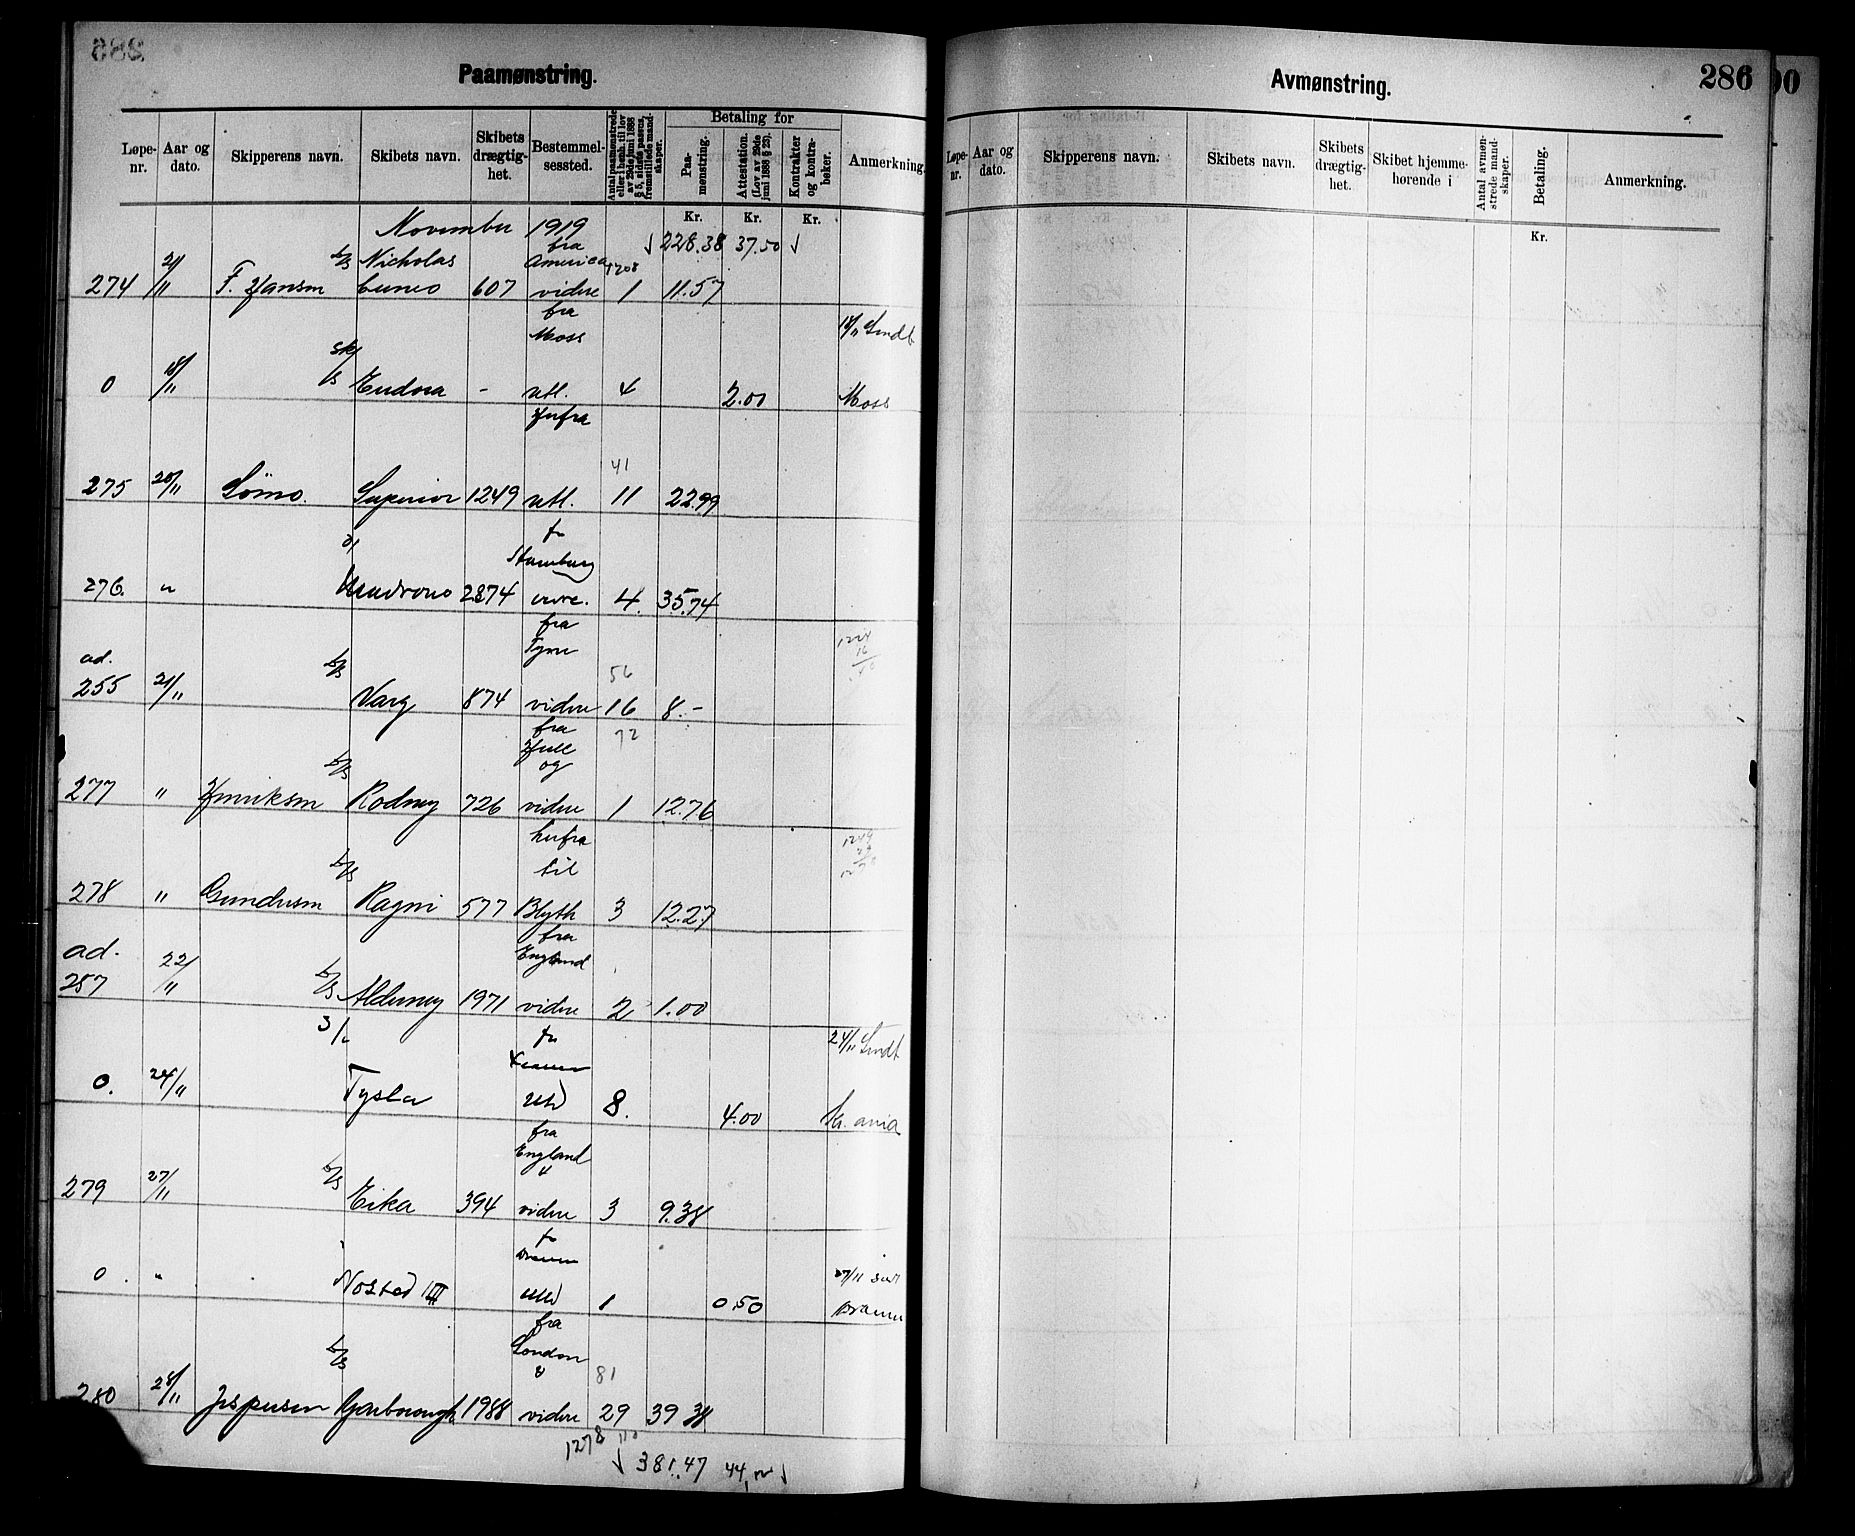 Paamønstring.
Løpe-nr. Aar og dato. Skipperens navn. Skibets navn. Skibets drægtig-het. Bestemmel-sessted. Antal paamønstrede eller i henh. til lov av 29de juni 1888 § 5, sidste passus, fremstillede mand-skaper. Betaling for Paa-mønstring. Attestation. (Lov av 29de juni 1888 § 23). Kontrakter og kontra-bøker. Anmerkning.
Kr. Kr. Kr.
November 1919
228.38 37.50
Nicholas fra America 1208
274 21/11 F. Hansen Cuneo 607 videre 1 11.57
fra Moss 18/11 Sendt
0 18/11 Eudora - utl. 4 2.00 Moss
Herfra 41
275 20/11 Superior 1249 utl. 11 22.99
fr Hamburg
276. " 2874 4. 35.74
fra Tyne
ad. 255 21/11 Varg 874 videre 16 8.-
56
72
fra Hull og
277 " Henriksen Rodney 726 videre 1 12.76
herfra til
278 " Gundersen Ragni 577 Blyth 3 12.27
fra England
ad. 257 22/11 Alderney 1971 videre 2 1.00
24/11 Sendt
0. 24/11 Tysla utl 8. 4.00 Kr.ania
fra England
279 27/11 Eika 394 videre 3 9.38
fr Dramm 27/11 Sendt
0. " Nøsted III utl 1 0.50 Dramm
fra London & 81
280 28/11 Jespersen Yarborough 1988 videre 29 39 38
1278 110
381.47 44,00
Avmønstring.
286
Løpe-nr. Aar og dato. Skipperens navn. Skibets navn. Skibets drægtig-het. Skibet hjemme-hørende i Antal avmøn-strede mand-skaper. Betaling. Anmerkning.
Kr.